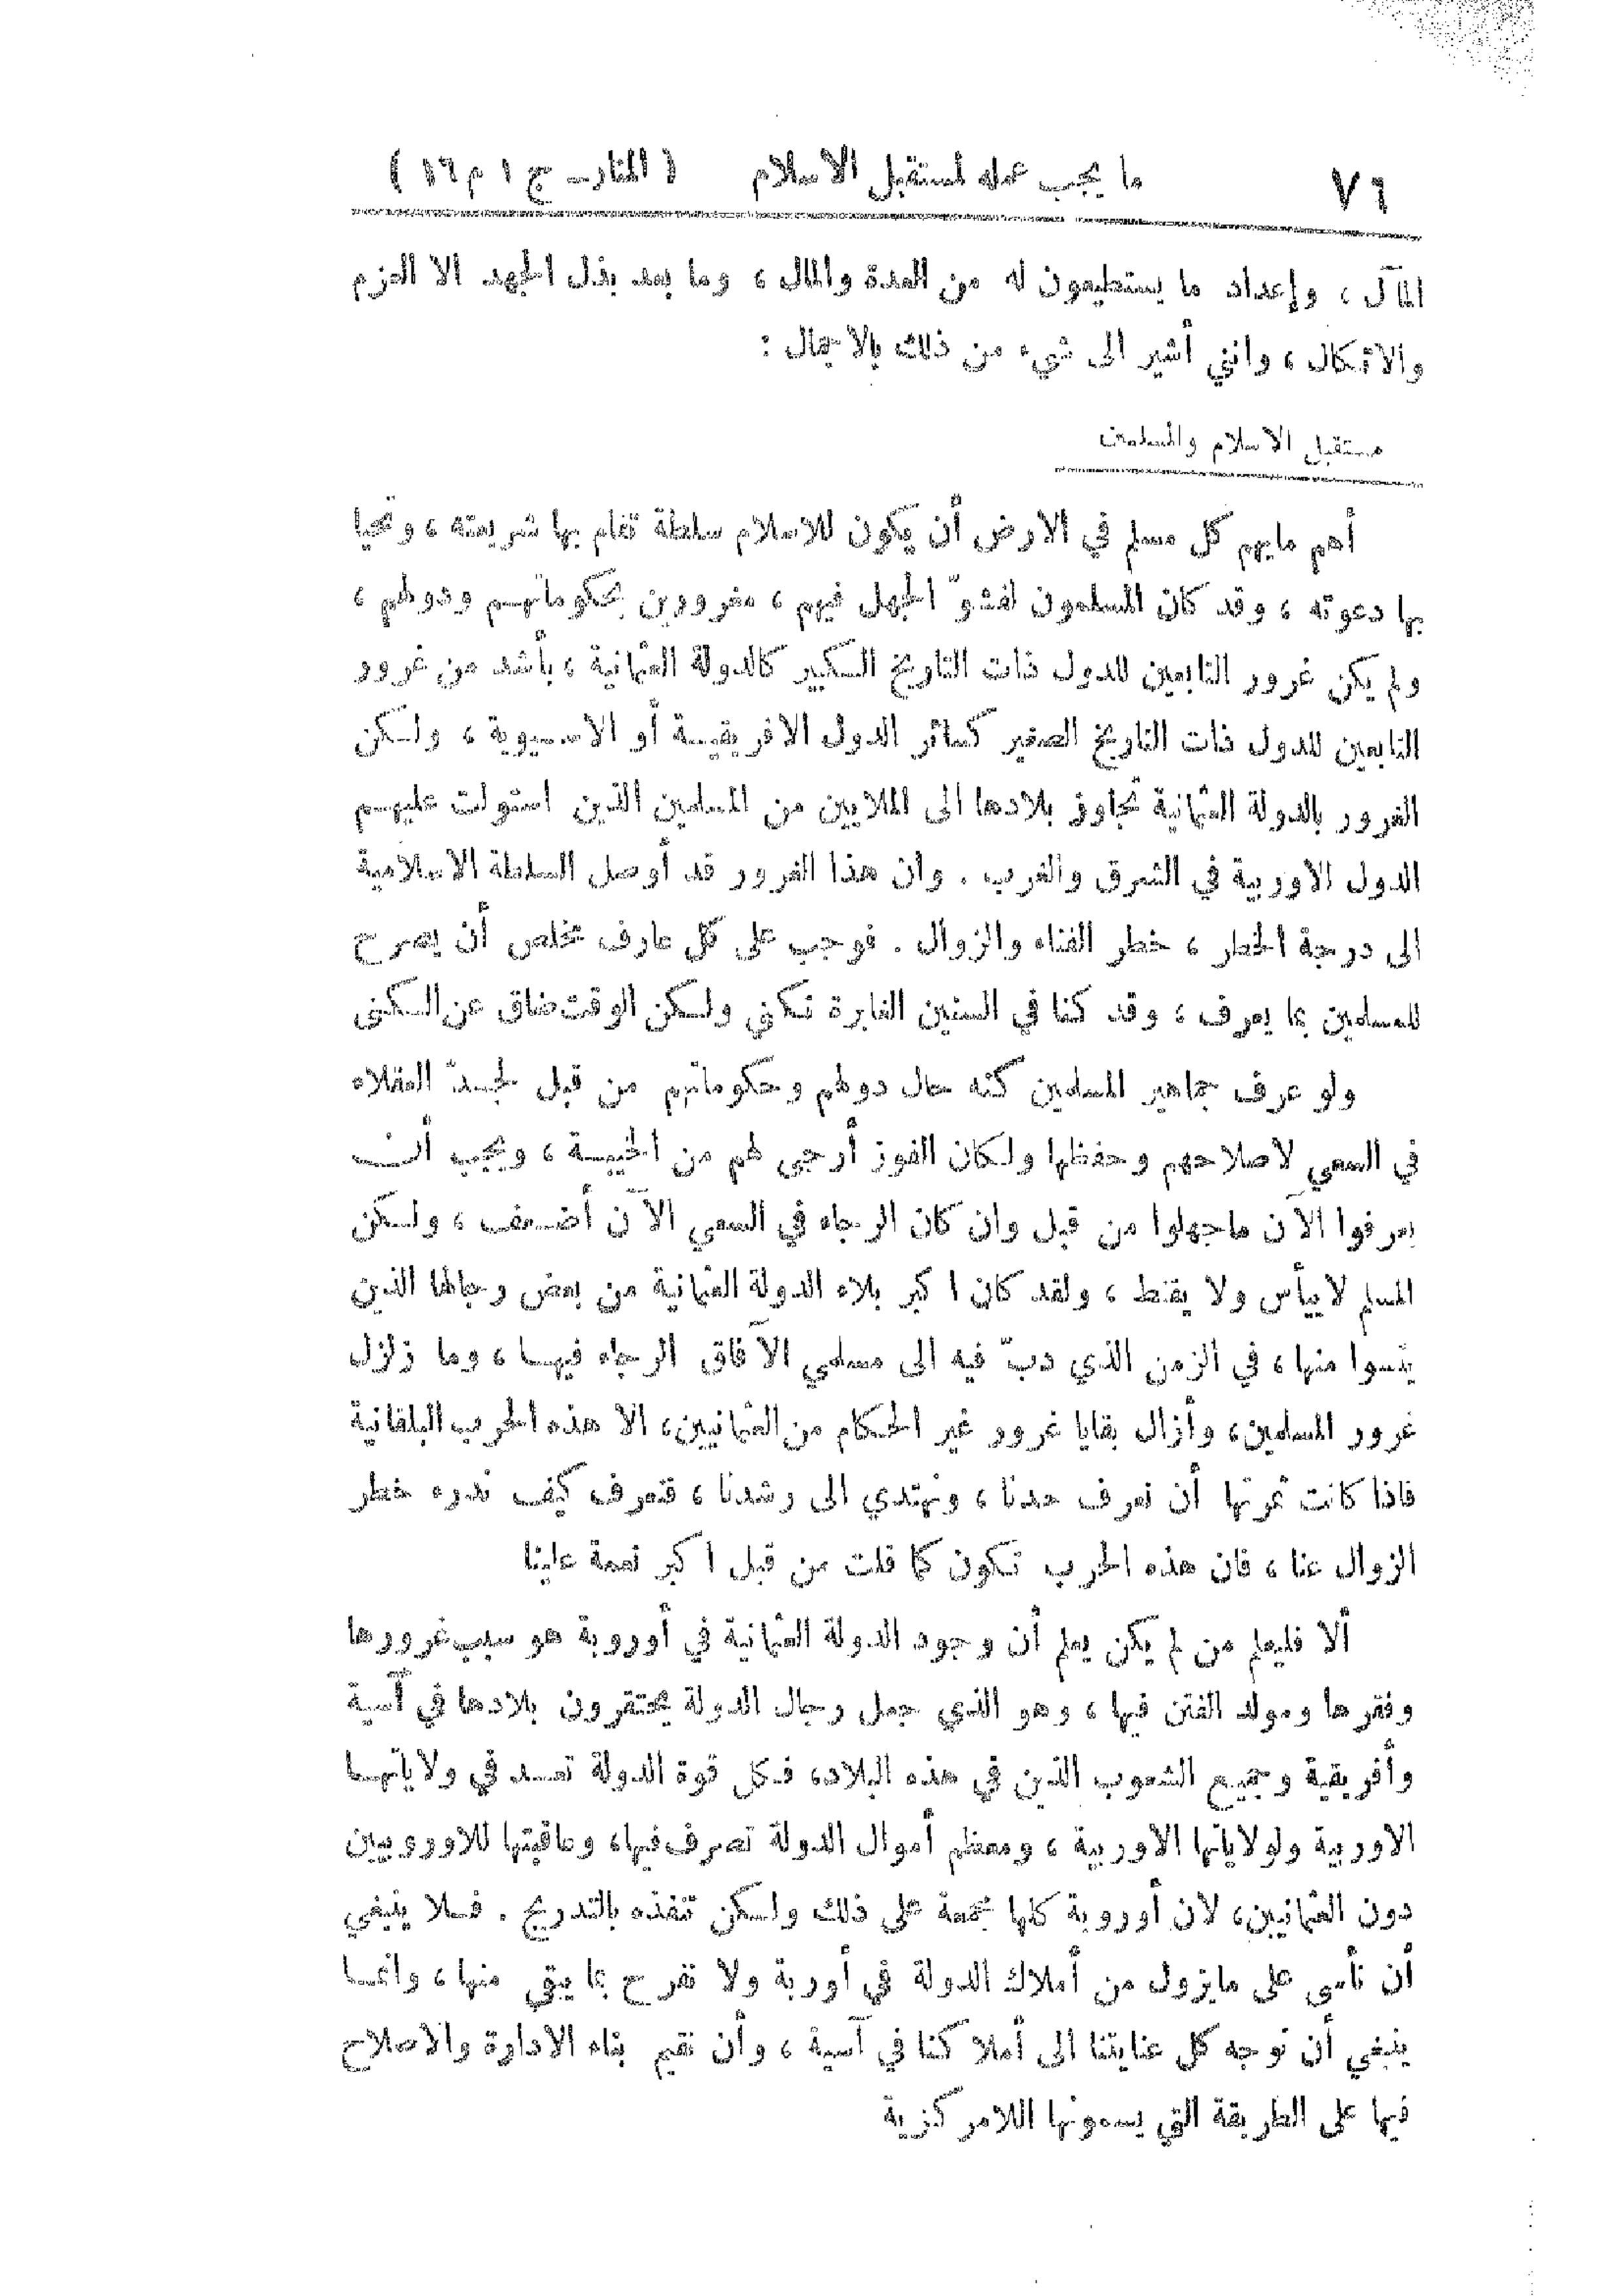 ٧٦ ما يجب عمله لمستقبل الاسلام ( المنار ـ ج ١ م ١٦ )
المآل ، وإعداد ما يستطيعون له من العدة والمال ، وما بعد بذل الجهد الا العزم
والاتكال ، وانني أشير الى شيء من ذلك بالاجمال :
مستقبل الاسلام والمسلمين
أهم مايهم كل مسلم في الارض أن يكون للاسلام سلطة تقام بها شريعته ، وتحيا
بها دعوته ، وقد كان المسلمون لفشوّ الجهل فيهم ، مغرورين بحكوماتهم ودولهم ،
ولم يكن غرور التابعين للدول ذات التاريخ الكبير كالدولة العثمانية ، بأشد من غرور
التابعين للدول ذات التاريخ الصغير كسائر الدول الافريقية أو الاسيوية ، ولكن
الغرور بالدولة العثمانية تجاوز بلادها الى الملايين من المسلمين الذين استولت عليهم
الدول الاوربية في الشرق والغرب . وان هذا الغرور قد أوصل السلطة الاسلامية
الى درجة الخطر ، خطر الفناء والزوال . فوجب على كل عارف مخلص أن يصرح
للمسلمين بما يعرف ، وقد كنا في السنين الغابرة نكني ولكن الوقت ضاق عن الكنى
ولو عرف جماهير المسلمين كنه حال دولهم وحكوماتهم من قبل لجدّ العقلاء
في السعي لاصلاحهم وحفظها ولكان الفوز أرجى لهم من الخيبة ، ويجب أن
يعرفوا الآن ماجهلوا من قبل وان كان الرجاء في السعي الآن أضعف ، ولكن
المسلم لا ييأس ولا يقنط ، ولقد كان اكبر بلاء الدولة العثمانية من بعض رجالها الذين
يئسوا منها ، في الزمن الذي دبّ فيه الى مسلمي الآفاق الرجاء فيها ، وما زلزل
غرور المسلمين ، وأزال بقايا غرور غير الحكام من العثمانيين ، الا هذه الحرب البلقانية
فاذا كانت ثمرتها أن نعرف حدنا ، ونهتدي الى رشدنا ، فنعرف كيف ندرء خطر
الزوال عنا ، فان هذه الحرب تكون كما قلت من قبل اكبر نعمة علينا
ألا فليعلم من لم يكن يعلم أن وجود الدولة العثمانية في أوروبة هو سبب غرورها
وفقرها ومولد الفتن فيها ، وهو الذي جعل رجال الدولة يحتقرون بلادها في آسية
وأفريقية وجميع الشعوب الذين في هذه البلاد ، فكل قوة الدولة تعد في ولاياتها
الاوربية ولولاياتها الاوربية ، ومعظم أموال الدولة تصرف فيها ، وعاقبتها للاوروبيين
دون العثمانيين ، لان أوروبة كلها مجمعة على ذلك ولكن تنفذه بالتدريج . فلا ينبغي
أن نأسى على مايزول من أملاك الدولة في أوربة ولا نفرح بما يبقى منها ، وانما
ينبغي أن نوجه كل عنايتنا الى أملاكنا في آسية ، وأن نقيم بناء الادارة والاصلاح
فيها على الطريقة التي يسمونها اللامركزية